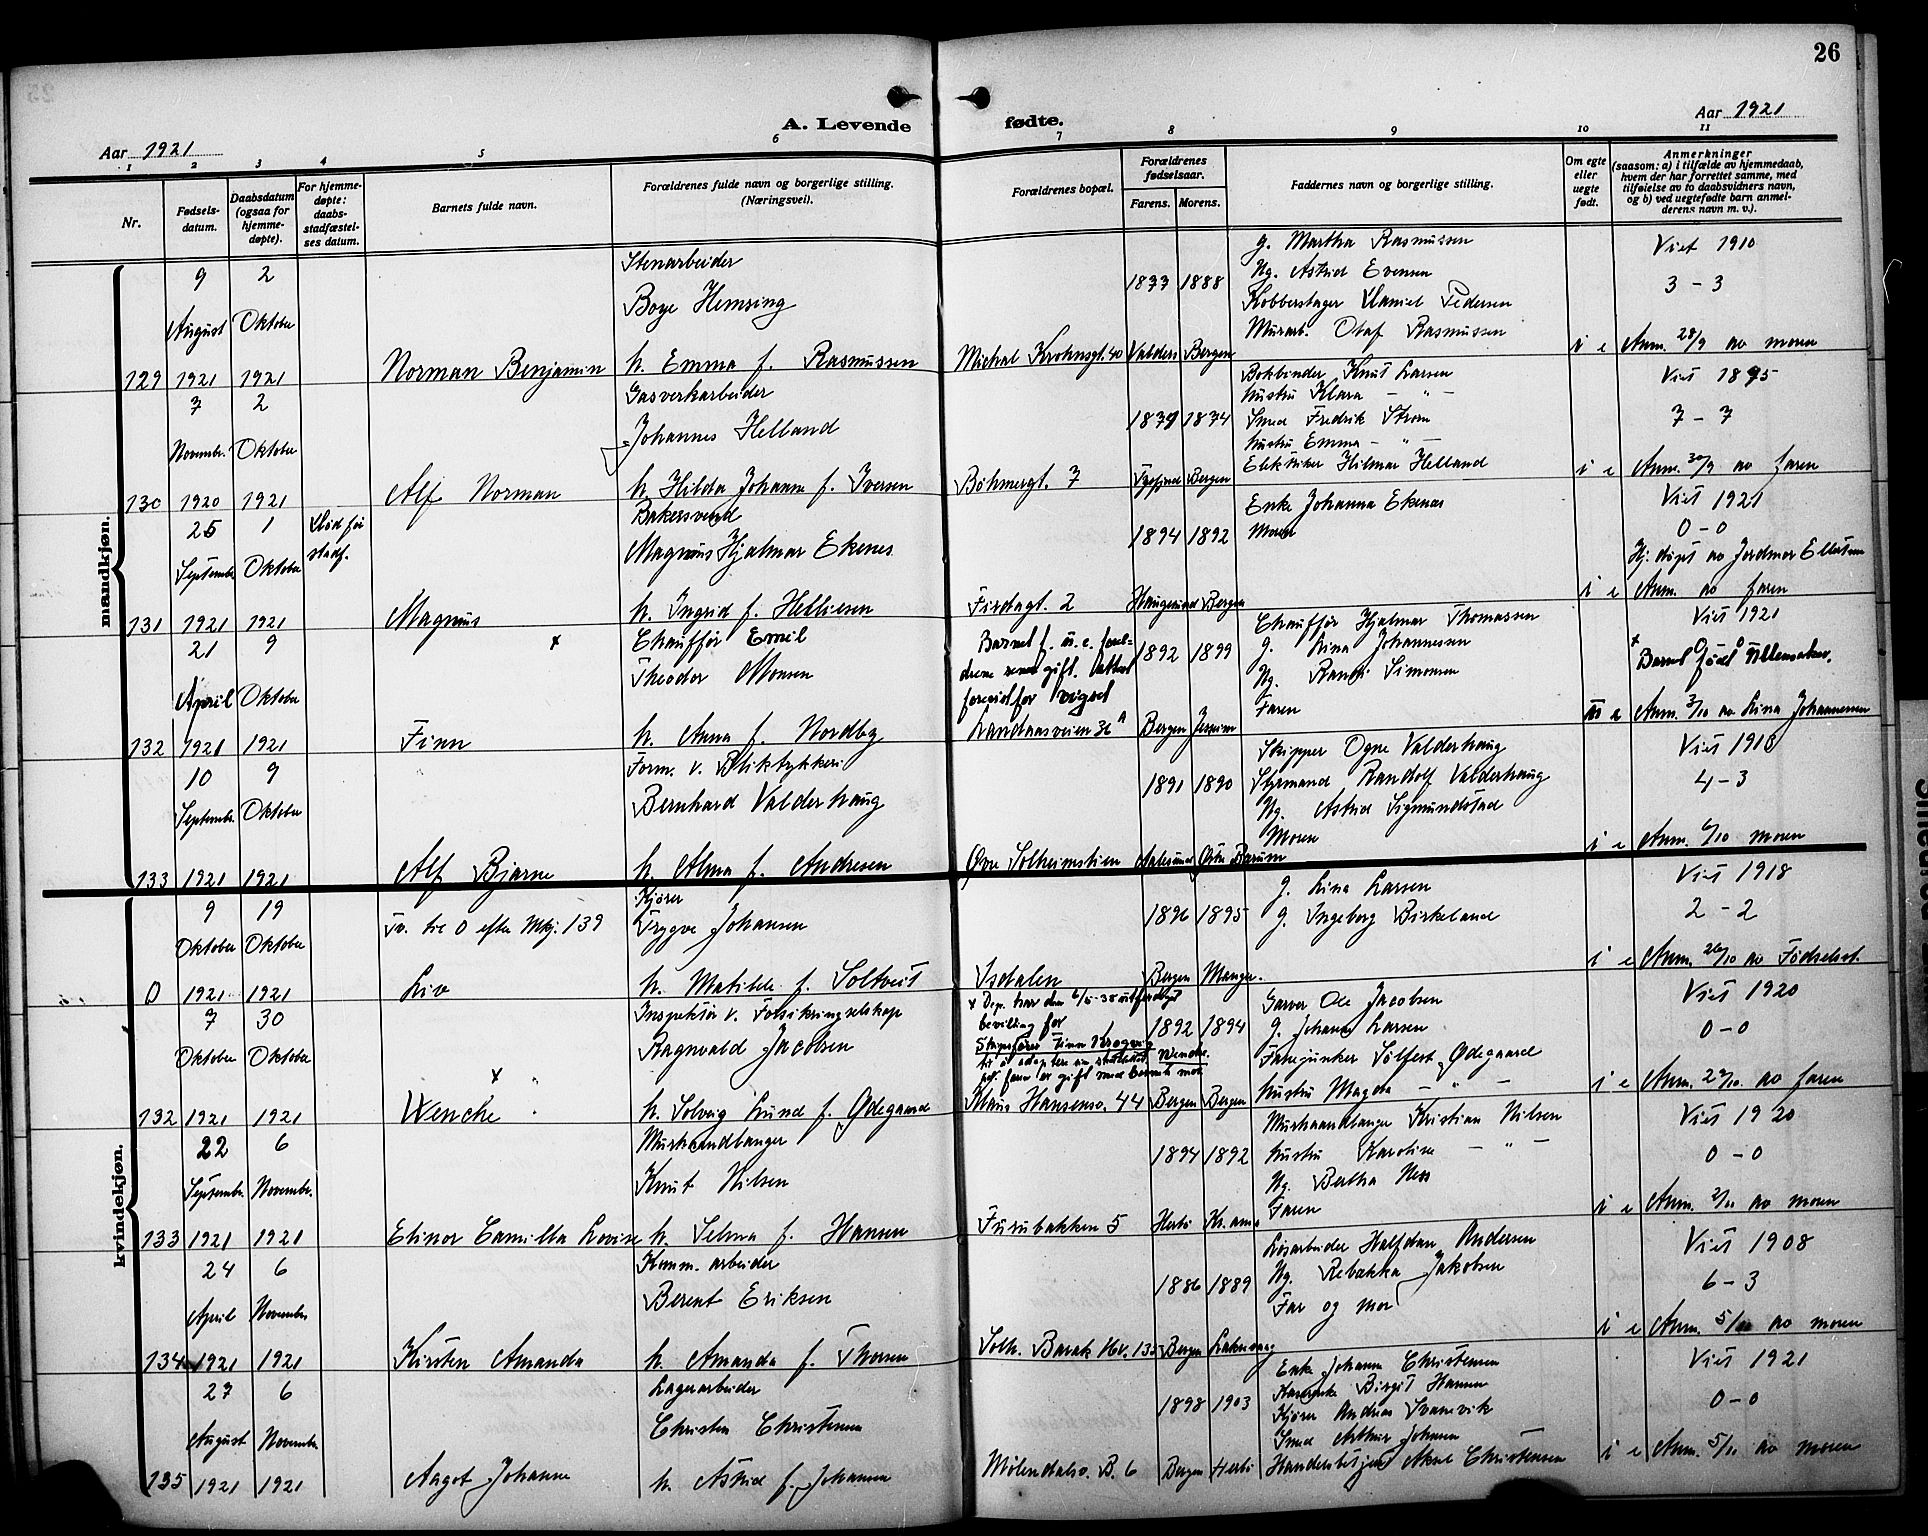 26
A. Levende fødte.
Aar 1921
Aar 1921
1 2 3 4 5 6 7 8 9 10 11
Nr.
Fødsels-
datum.
Daabsdatum
(ogsaa for
hjemme-
døpte).
For hjemme-
døpte:
daabs-
stadfæstel-
ses datum.
Barnets fulde navn.
Forældrenes fulde navn og borgerlige stilling.
(Næringsvei).
Forældrenes bopæl.
Forældrenes
fødselsaar.
Farens. Morens.
Faddernes navn og borgerlige stilling.
Om egte
eller
uegte
født.
Anmerkninger
(saasom: a) i tilfælde av hjemmedaab,
hvem der har forrettet samme, med
tilføielse av to daabsvidners navn,
og b) ved uegtefødte barn anmel-
derens navn m. v.).
mandkjøn.
129
9 August 1921
2 Oktober 1921
Norman Benjamin
Stenarbeider
Boye Hemsing
h. Emma f. Rasmussen
Michal Krohnsgt. 40
Valders
1888 Bergen
g. Martha Rasmussen
Ug. Astrid Evensen
Kobberslager Daniel Pedersen
Murarb. Olaf Rasmussen
i e
Viet 1910
3 - 3
Anm. 28/9 av moren
130
7 Novembr. 1920
2 Oktober 1921
Alf Norman
Gasverkarbeider
Johannes Helland
h. Hilda Johanne f. Iversen
Böhmergt. 7
1874 Bergen
Bokbinder Knut Larsen
hustru Klara - " -
Smed Fredrik Strøm
hustru Emma - " -
Elektriker Hilmar Helland
i e
Viet 1895
7 - 7
Anm. 30/9 av faren
131
25 September 1921
1 Oktober 1921
Død før
stadf.
Magnus
Bakersvend
Magnus Hjalmar Ekenes
h. Ingrid f. Helliesen
Firdagt. 2
1894 Haugesund
1892 Bergen
Enke Johanna Ekenas
Moren
i e
Viet 1921
0 - 0
Hj. døpt av Jordmor Ellertsen
Anm. av faren
132
21 April 1921
9 Oktober 1921
Finn
x
Chauffør Emil
Theodor Monsen
h. Anna f. Nordby
Barnet f. u. e. forel-
drene senere gift. Attest
forevist for vigsel
Landaasveien 36 A
1892 Bergen
1899 Jessheim
Chauffør Hjalmar Thomassen
g. Lina Johannesen
Ug. Randi Simonsen
Faren
Viet 1921
x
Barnet født i Ullensaker.
Anm. 3/10 av Lina Johannesen
133
10 Septembr. 1921
9 Oktober 1921
Alf Bjarne
Form. v. Bliktrykkeri
Bernhard Valderhaug
h. Alma f. Andresen
Øvre Solheimstien
1891 Aalesund
1890 Østre Bærum
Skipper Ogne Valderhaug
Styrmand Randolf Valderhaug
Ug. Astrid Sigmundstad
Moren
i e
Viet 1916
4 - 3
Anm. 6/10 moren
kvindekjøn.
0
9 Oktober 1921
19 Oktober 1921
Tv. til 0 efter Mkj. 139
Liv
Kjører
Trygve Johansen
h. Matilde f. Soltveit
Isdalen
1896 Bergen
1895 Manger.
g. Lina Larsen
g. Ingeborg Birkeland
i e
Viet 1918
2 - 2
Anm. 26/10 av Fødselsst.
132
7 Oktober 1921
30 Oktober 1921
x
Wenche
Inspektør v. Forsikringselskap
Ragnvald Jacobsen
h. Solveig Lund f. Ødegaard
x Dep. har den 6/5-35 utferdiget
bevilling for
Skipsfører Finn Krogerig
til å adoptere sin stedatter Wenche.
Adf. faren er gift med barnets mor
Klaus Hansensv. 44
1892 Bergen
1894 Bergen
Garver Ole Jacobsen
g. Johanne Larsen
Fanejunker Sölfest Ødegaard
hustru Magda - " -
i e
Viet 1920
0 - 0
Anm. 27/10 av faren
133
22 Septembr. 1921
6 Novembr. 1921
Elinor Camilla Lovise
Murhaandlanger
Knut Nilsen
h. Selma f. Hansen
Furubakken 5
1894 Herlö
1892 Kr.ania
Murhaandlanger Kristian Nilsen
hustru Karoline - " -
Ug. Bertha Ness
Faren
i e
Viet 1920
0 - 0
Anm. 2/11 av moren
134
24 April 1921
6 November 1921
Kirsten Amanda
Komm. arbeider
Berent Eriksen
h. Amanda f. Thorsen
Solh. Barak
1886 Bergen
1889 Laksevaag
Løsarbeider Halfdan Andersen
Ug. Rebakka Jakobsen
Far og mor
i e
Viet 1908
6 - 3
Anm. 5/11 av moren
135
27 August 1921
6 Novembr 1921
Aagot Johanne
Lagerarbeider
Christen Christensen
h. Astrid f. Johansen
Mölendalsv. B. 6
1898 Bergen
1903 Herlö
Enke Johanne Christensen
Birgit Hansen
Kjører Andreas Svanevik
Smed Arthur Johnsen
Handelsbetjent Aksel Christensen
i e
Viet 1921
0 - 0
Anm. 5/11 av moren